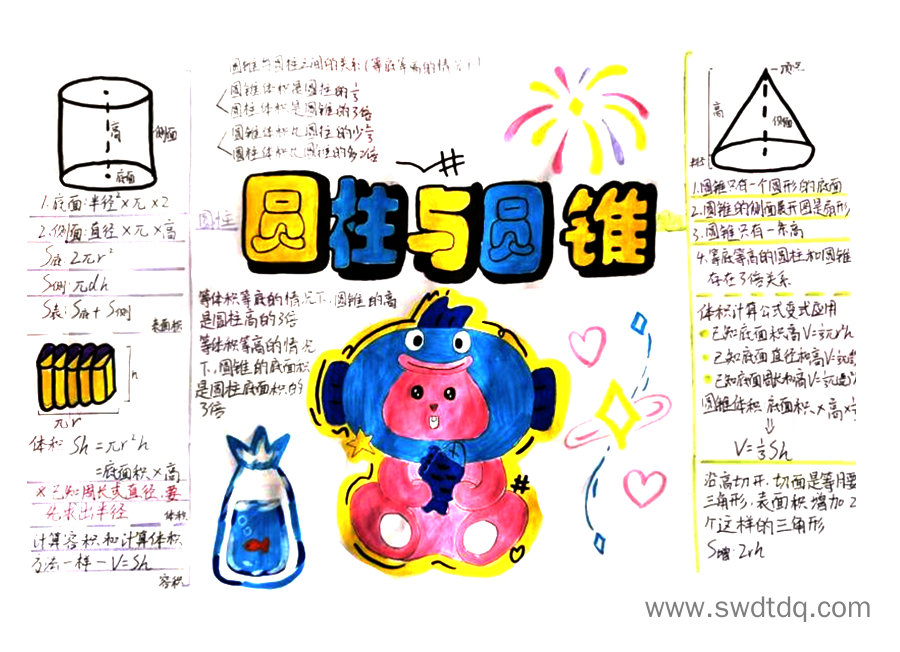 圆锥与圆柱之间的关系(等底等高的情况下)
圆锥体积是圆柱的⅓
圆柱体积是圆锥的3倍
圆锥体积比圆柱的少⅔
圆柱体积比圆锥的多2倍
圆柱与圆锥
高
侧面
底面
1.底面:半径²×π×2
2.侧面:直径×π×高
S底 2πr²
S侧:πdh
S表:S底+S侧
表面积
h
πr
体积 Sh=πr²h
=底面积×高
×已知周长或直径,要
先求出半径
体积
计算容积和计算体积
方法一样-V=Sh
容积
圆柱
等体积等底的情况下,圆锥的高
是圆柱高的3倍
等体积等高的情况
下,圆锥的底面积
是圆柱底面积的
3倍
顶点
高
侧面
1.圆锥只有一个圆形的底面
2.圆锥的侧面展开图是扇形
3.圆锥只有一条高
4.等底等高的圆柱和圆锥
存在3倍关系
体积计算公式变式应用
已知底面积高V=⅓πr²h
已知底面直径和高V=⅓π
已知底面周长和高V=⅓π
圆锥体积 底面积×高×⅓
V=⅓Sh
沿高切开,切面是等腰
三角形,表面积增加2
个这样的三角形
S增:2rh
www.swdtdq.com